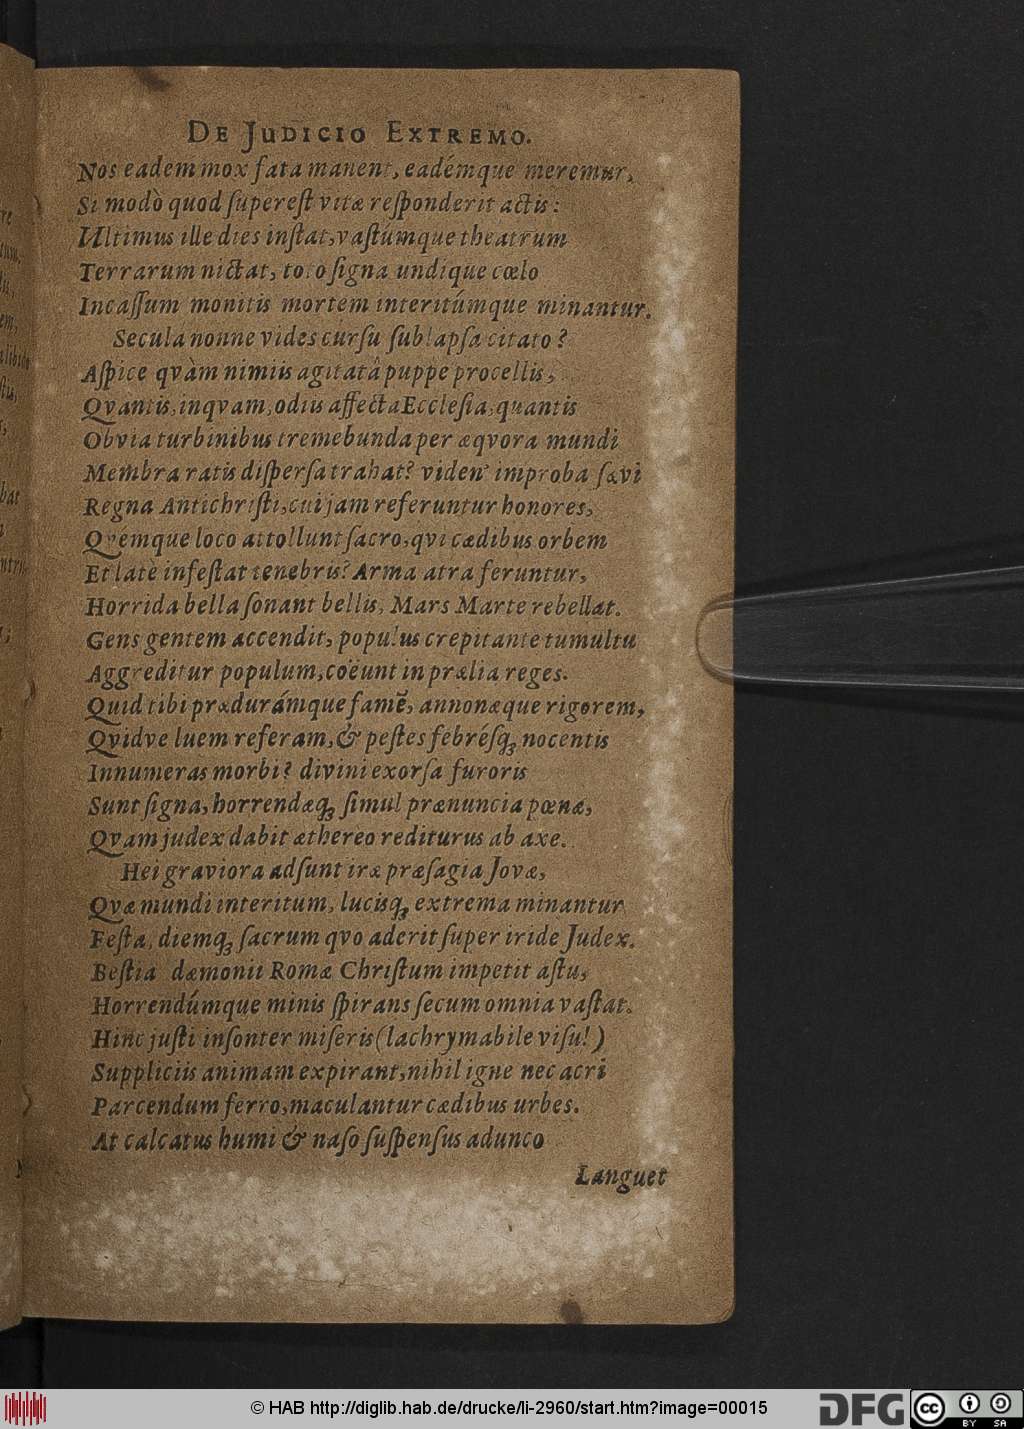 DE JUDICIO EXTREMO.
Nos eadem mox fata manent, eadémque meremur,
Si modò quod ſupereſt vitæ reſponderit actis:
Ultimus ille dies inſtat, vaſtúmque theatrum
Terrarum nictat, toto ſigna undique cœlo
Incaſſum monitis mortem interitúmque minantur.
Secula nonne vides curſu ſublapſa citato?
Aſpice qvàm nimiis agitatâ puppe procellis,
Qvantis, inqvam, odiis affecta Eccleſia, quantis
Obvia turbinibus tremebunda per æqvora mundi
Membra ratis diſperſa trahat? viden' improba ſævi
Regna Antichriſti, cui jam referuntur honores,
Qvemque loco attollunt ſacro, qvi cædibus orbem
Et latè infeſtat tenebris? Arma atra feruntur,
Horrida bella ſonant bellis, Mars Marte rebellat.
Gens gentem accendit, populus crepitante tumultu
Aggreditur populum, coëunt in prælia reges.
Quid tibi prædurámque famẽ, annonæque rigorem,
Qvidve luem referam, & peſtes febréſq; nocentis
Innumeras morbi? divini exorſa furoris
Sunt ſigna, horrendæq; ſimul prænuncia pœnæ,
Qvam judex dabit æthereo rediturus ab axe.
Hei graviora adſunt iræ præſagia Jovæ,
Qvæ mundi interitum, lucisq; extrema minantur
Feſta, diemq; ſacrum qvo aderit ſuper iride Judex.
Beſtia dæmonii Romæ Chriſtum impetit aſtu,
Horrendúmque minis ſpirans ſecum omnia vaſtat.
Hinc juſti inſonter miſeris (lachrymabile viſu!)
Suppliciis animam expirant, nihil igne nec acri
Parcendum ferro, maculantur cædibus urbes.
At calcatus humi & naſo ſuſpenſus adunco
Languet
© HAB http://diglib.hab.de/drucke/li-2960/start.htm?image=00015
DFG
cc BY SA